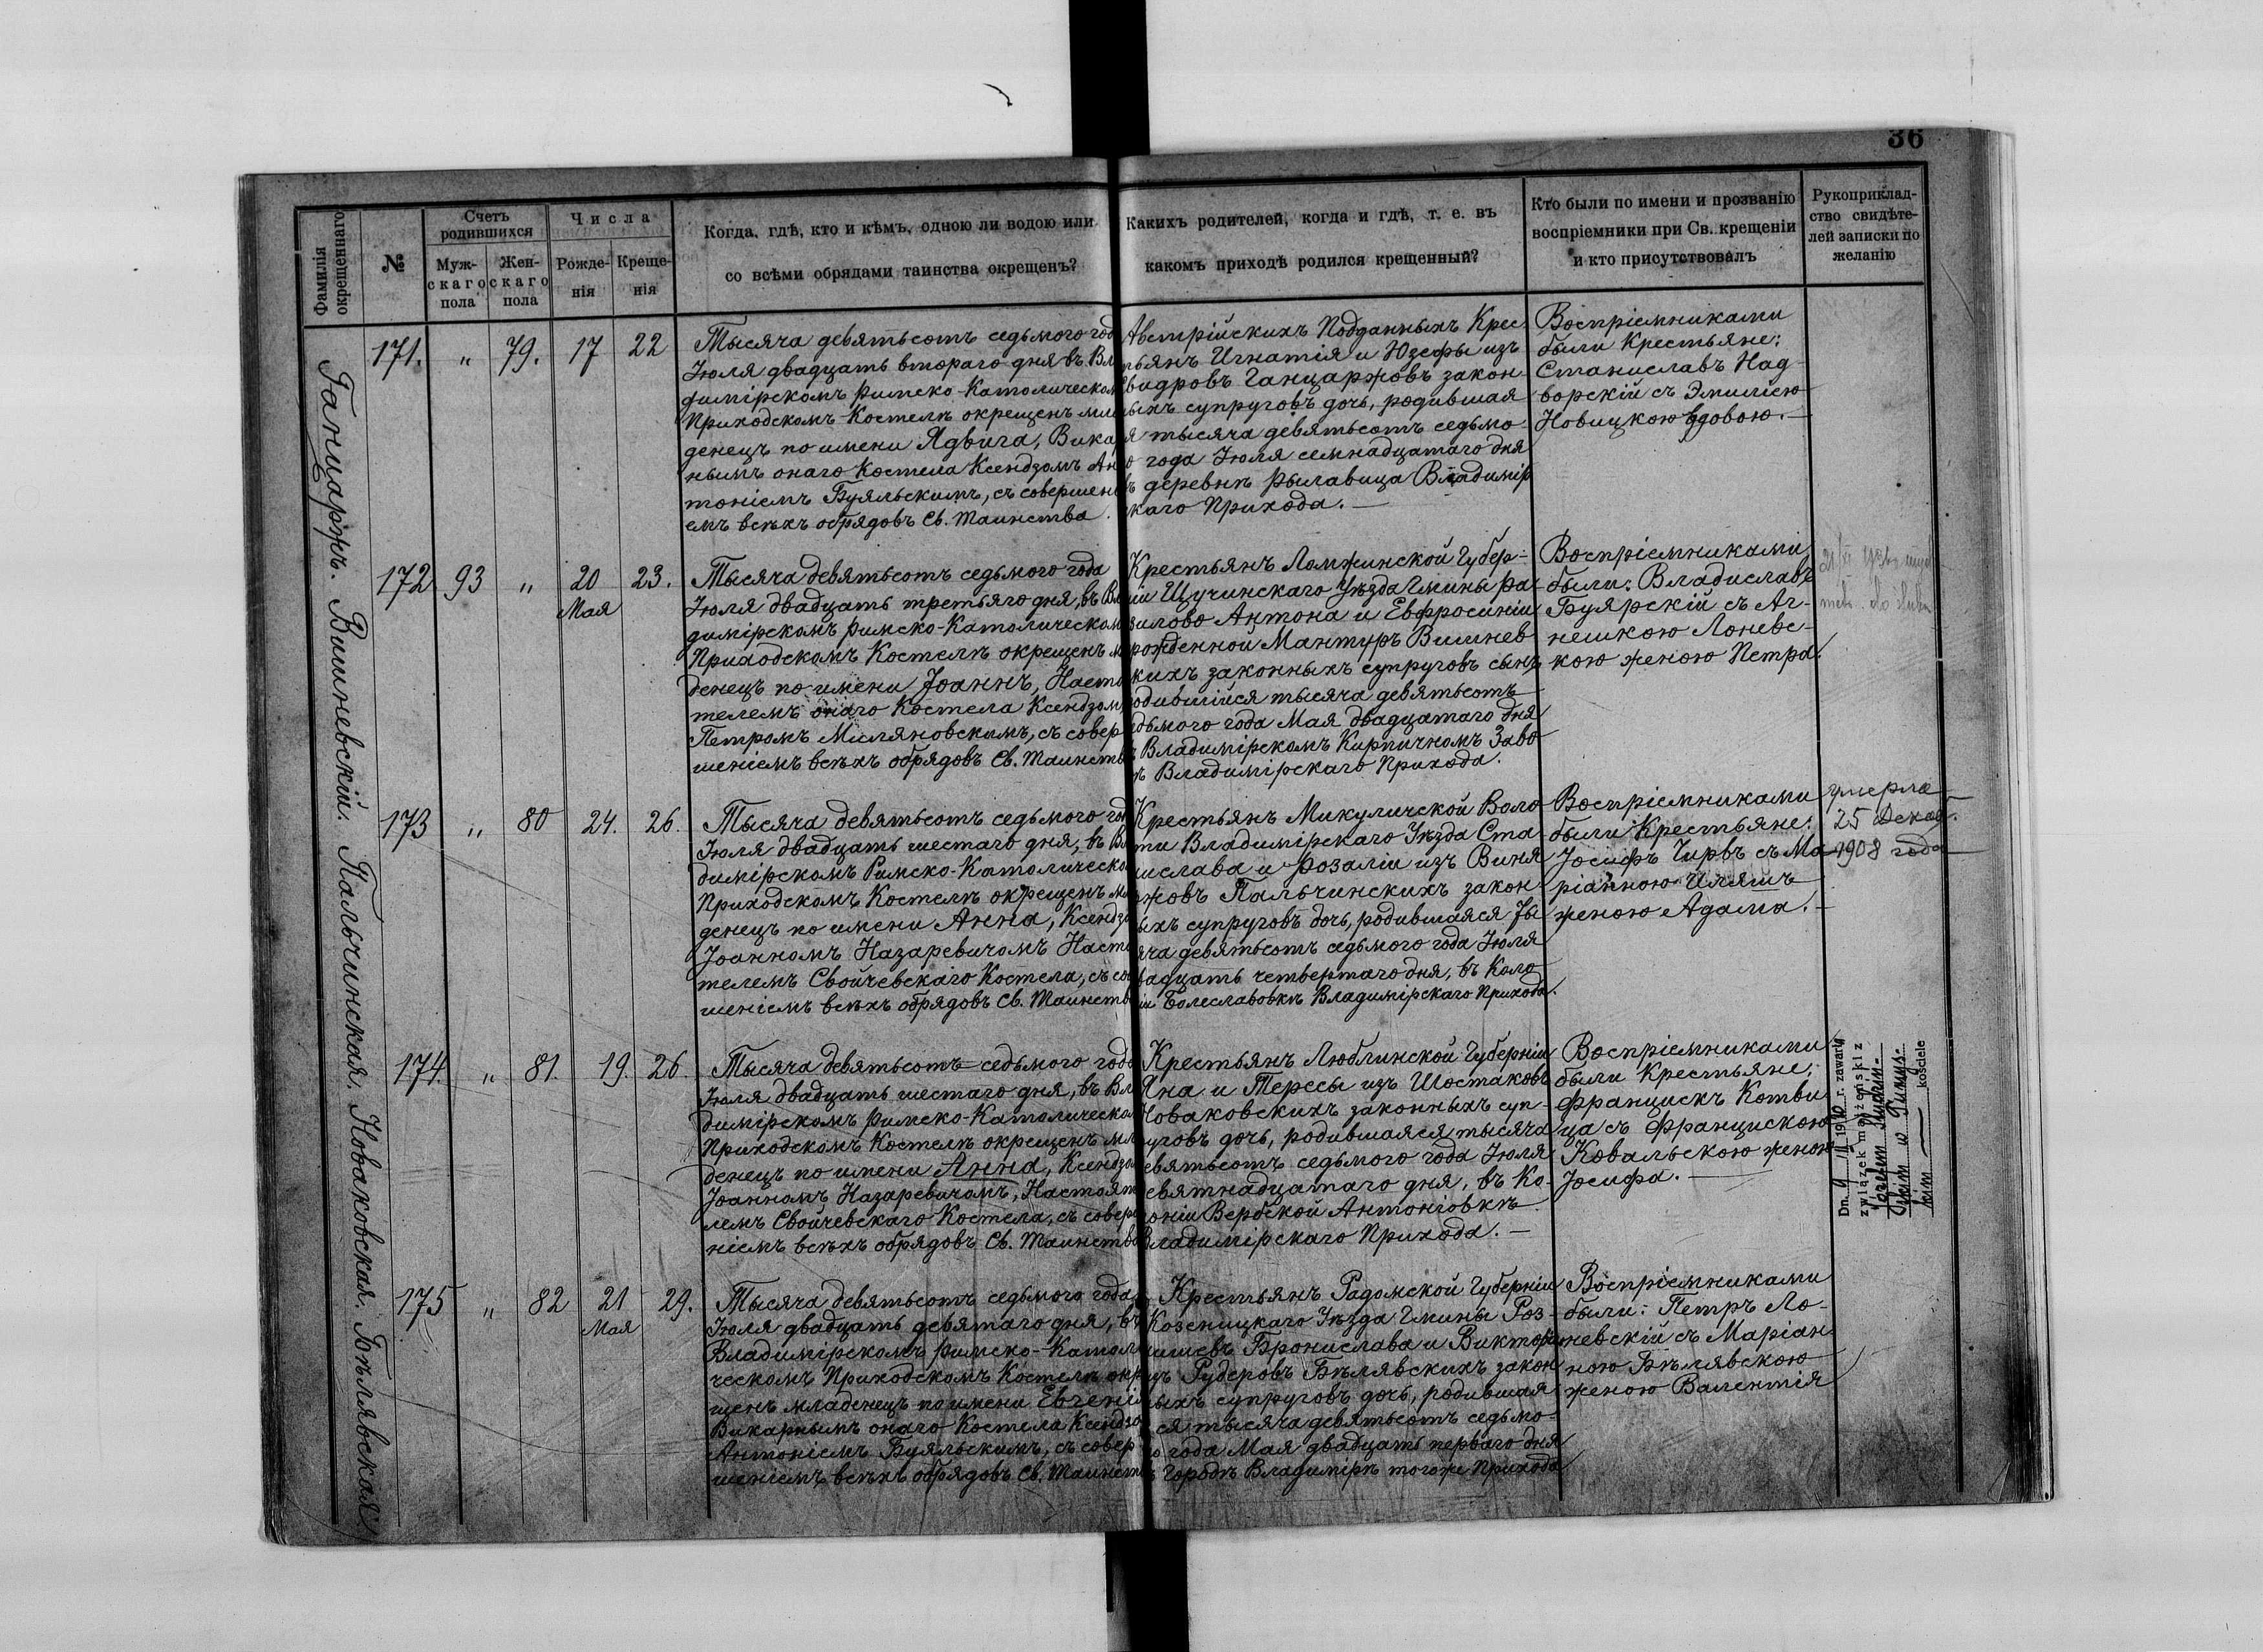 36
Фамилія окрещеннаго
№
Счетъ родившихся
Муж-скаго пола
Жен-скаго пола
Числа
Рожде-нія
Креще-нія
Когда, гдѣ, кто и кѣмъ, одною ли водою или
со всѣми обрядами таинства окрещенъ?
Какихъ родителей, когда и гдѣ, т. е. въ
какомъ приходѣ родился крещенный?
Кто были по имени и прозванію
воспріемники при Св. крещеніи
и кто присутствовалъ
Рукоприклад-
ство свидѣте-
лей записки по
желанію
Ганцаржъ.
171. " 79. 17 22
Тысяча девятьсотъ седьмого год
Іюля двадцать втораго дня въ Вла
димірскомъ Римско-Католическом
Приходскомъ Костелѣ окрещенъ мла
денецъ по имени Ядвига, Вика
нымъ онаго Костела Ксендзомъ Ан
тоніемъ Буяльскимъ, съ совершені
емъ всѣхъ обрядовъ Св. Таинства.
Австрійскихъ Подданныхъ Крес
тьянъ Игнатія и Юзефы изъ
Свидровъ Ганцаржовъ закон
ныхъ супруговъ дочь, родившая
я тысяча девятьсотъ седьмо
о года Іюля семнадцатаго дня
ъ деревнѣ Рылавица Владимір
скаго Прихода. —
Воспріемниками
были Крестьяне:
Станиславъ Над-
ворскій съ Эмиліею
Новицкою вдовою. —
Вишневскій.
172 93 " 20 Мая 23.
Тысяча девятьсотъ седьмого года
Іюля двадцать третьяго дня, въ Вла
димірскомъ Римско-Католическом
Приходскомъ Костелѣ окрещенъ м
денецъ по имени Іоаннъ, Насто
телемъ онаго Костела Ксендзом
Петромъ Миляновскимъ, съ совер
шеніемъ всѣхъ обрядовъ Св. Таинств
Крестьянъ Ломжинской Губер-
ніи Щучинскаго Уѣзда Гмины Ра-
зилово Антона и Евфросиніи
рожденной Мантуръ Вишнев
скихъ законныхъ супруговъ сынъ
одившійся тысяча девятьсотъ
едьмого года Мая двадцатаго дня
ъ Владимірскомъ Кирпичномъ Заво
ѣ Владимірскаго Прихода.
Воспріемниками
были: Владиславъ
Буярскій съ Аг-
нешкою Лоневс-
кою женою Петра.
Пальчинская.
173 " 80 24. 26.
Тысяча девятьсотъ седьмого год
Іюля двадцать шестаго дня, въ Вл
димірскомъ Римско-Католическо
Приходскомъ Костелѣ окрещенъ мл
денецъ по имени Анна, Ксендзо
Іоанномъ Назаревичомъ Насто
телемъ Свойчевскаго Костела, съ со
шеніемъ всѣхъ обрядовъ Св. Таинств
Крестьянъ Микуличской Воло
сти Владимірскаго Уѣзда Ста
нислава и Розаліи изъ Виня
жовъ Пальчинскихъ закон
ыхъ супруговъ дочь, родившаяся ты
яча девятьсотъ седьмого года Іюля
вадцать четвертаго дня, въ Коло
іи Болеславовкѣ Владимірскаго Прихода.
Воспріемниками
были Крестьяне:
Іосифъ Чирвъ съ Ма
ріанною Иляшъ
женою Адама. —
умерла
25 Декаб.
1908 года
Новаковская.
174. " 81. 19. 26.
Тысяча девятьсотъ седьмого года
Іюля двадцать шестаго дня, въ Вл
димірскомъ Римско-Католическо
Приходскомъ Костелѣ окрещенъ мл
денецъ по имени Анна, Ксендзом
Іоанномъ Назаревичомъ, Настоят
лемъ Свойчевскаго Костела, съ совер
ніемъ всѣхъ обрядовъ Св. Таинства
Крестьянъ Люблинской Губерніи
Яна и Тересы изъ Шостаковъ
Новаковскихъ законныхъ суп-
уговъ дочь, родившаяся тысяча
евятьсотъ седьмого года Іюля
евятнадцатаго дня, въ Ко-
лоніи Вербской Антоніовкѣ
Владимірскаго Прихода. —
Воспріемниками
были Крестьяне:
Францискъ Котви
ца съ Францискою
Ковальскою женою
Іосифа. —
r. zawarła
związek małżeński z
kościele
Бѣлявская
175 " 82 21 Мая 29.
Тысяча девятьсотъ седьмого года
Іюля двадцать девятаго дня, въ
Владимірскомъ Римско-Катол
ческомъ Приходскомъ Костелѣ окре
щенъ младенецъ по имени Евгені
Викарнымъ онаго Костела Ксендзо
Антоніемъ Буяльскимъ, съ совер
шеніемъ всѣхъ обрядовъ Св. Таинств
Крестьянъ Радомской Губерніи
Козеницкаго Уѣзда Гмины Роз-
нишевъ Бронислава и Виктор
изъ Рудеровъ Бѣлявскихъ закон
ныхъ супруговъ дочь, родившая
ся тысяча девятьсотъ седьмо-
о года Мая двадцать перваго дня
ъ Городѣ Владимірѣ тогоже Прихода
Воспріемниками
были: Петръ Ло-
невскій съ Маріан
ною Бѣлявскою
женою Валентія